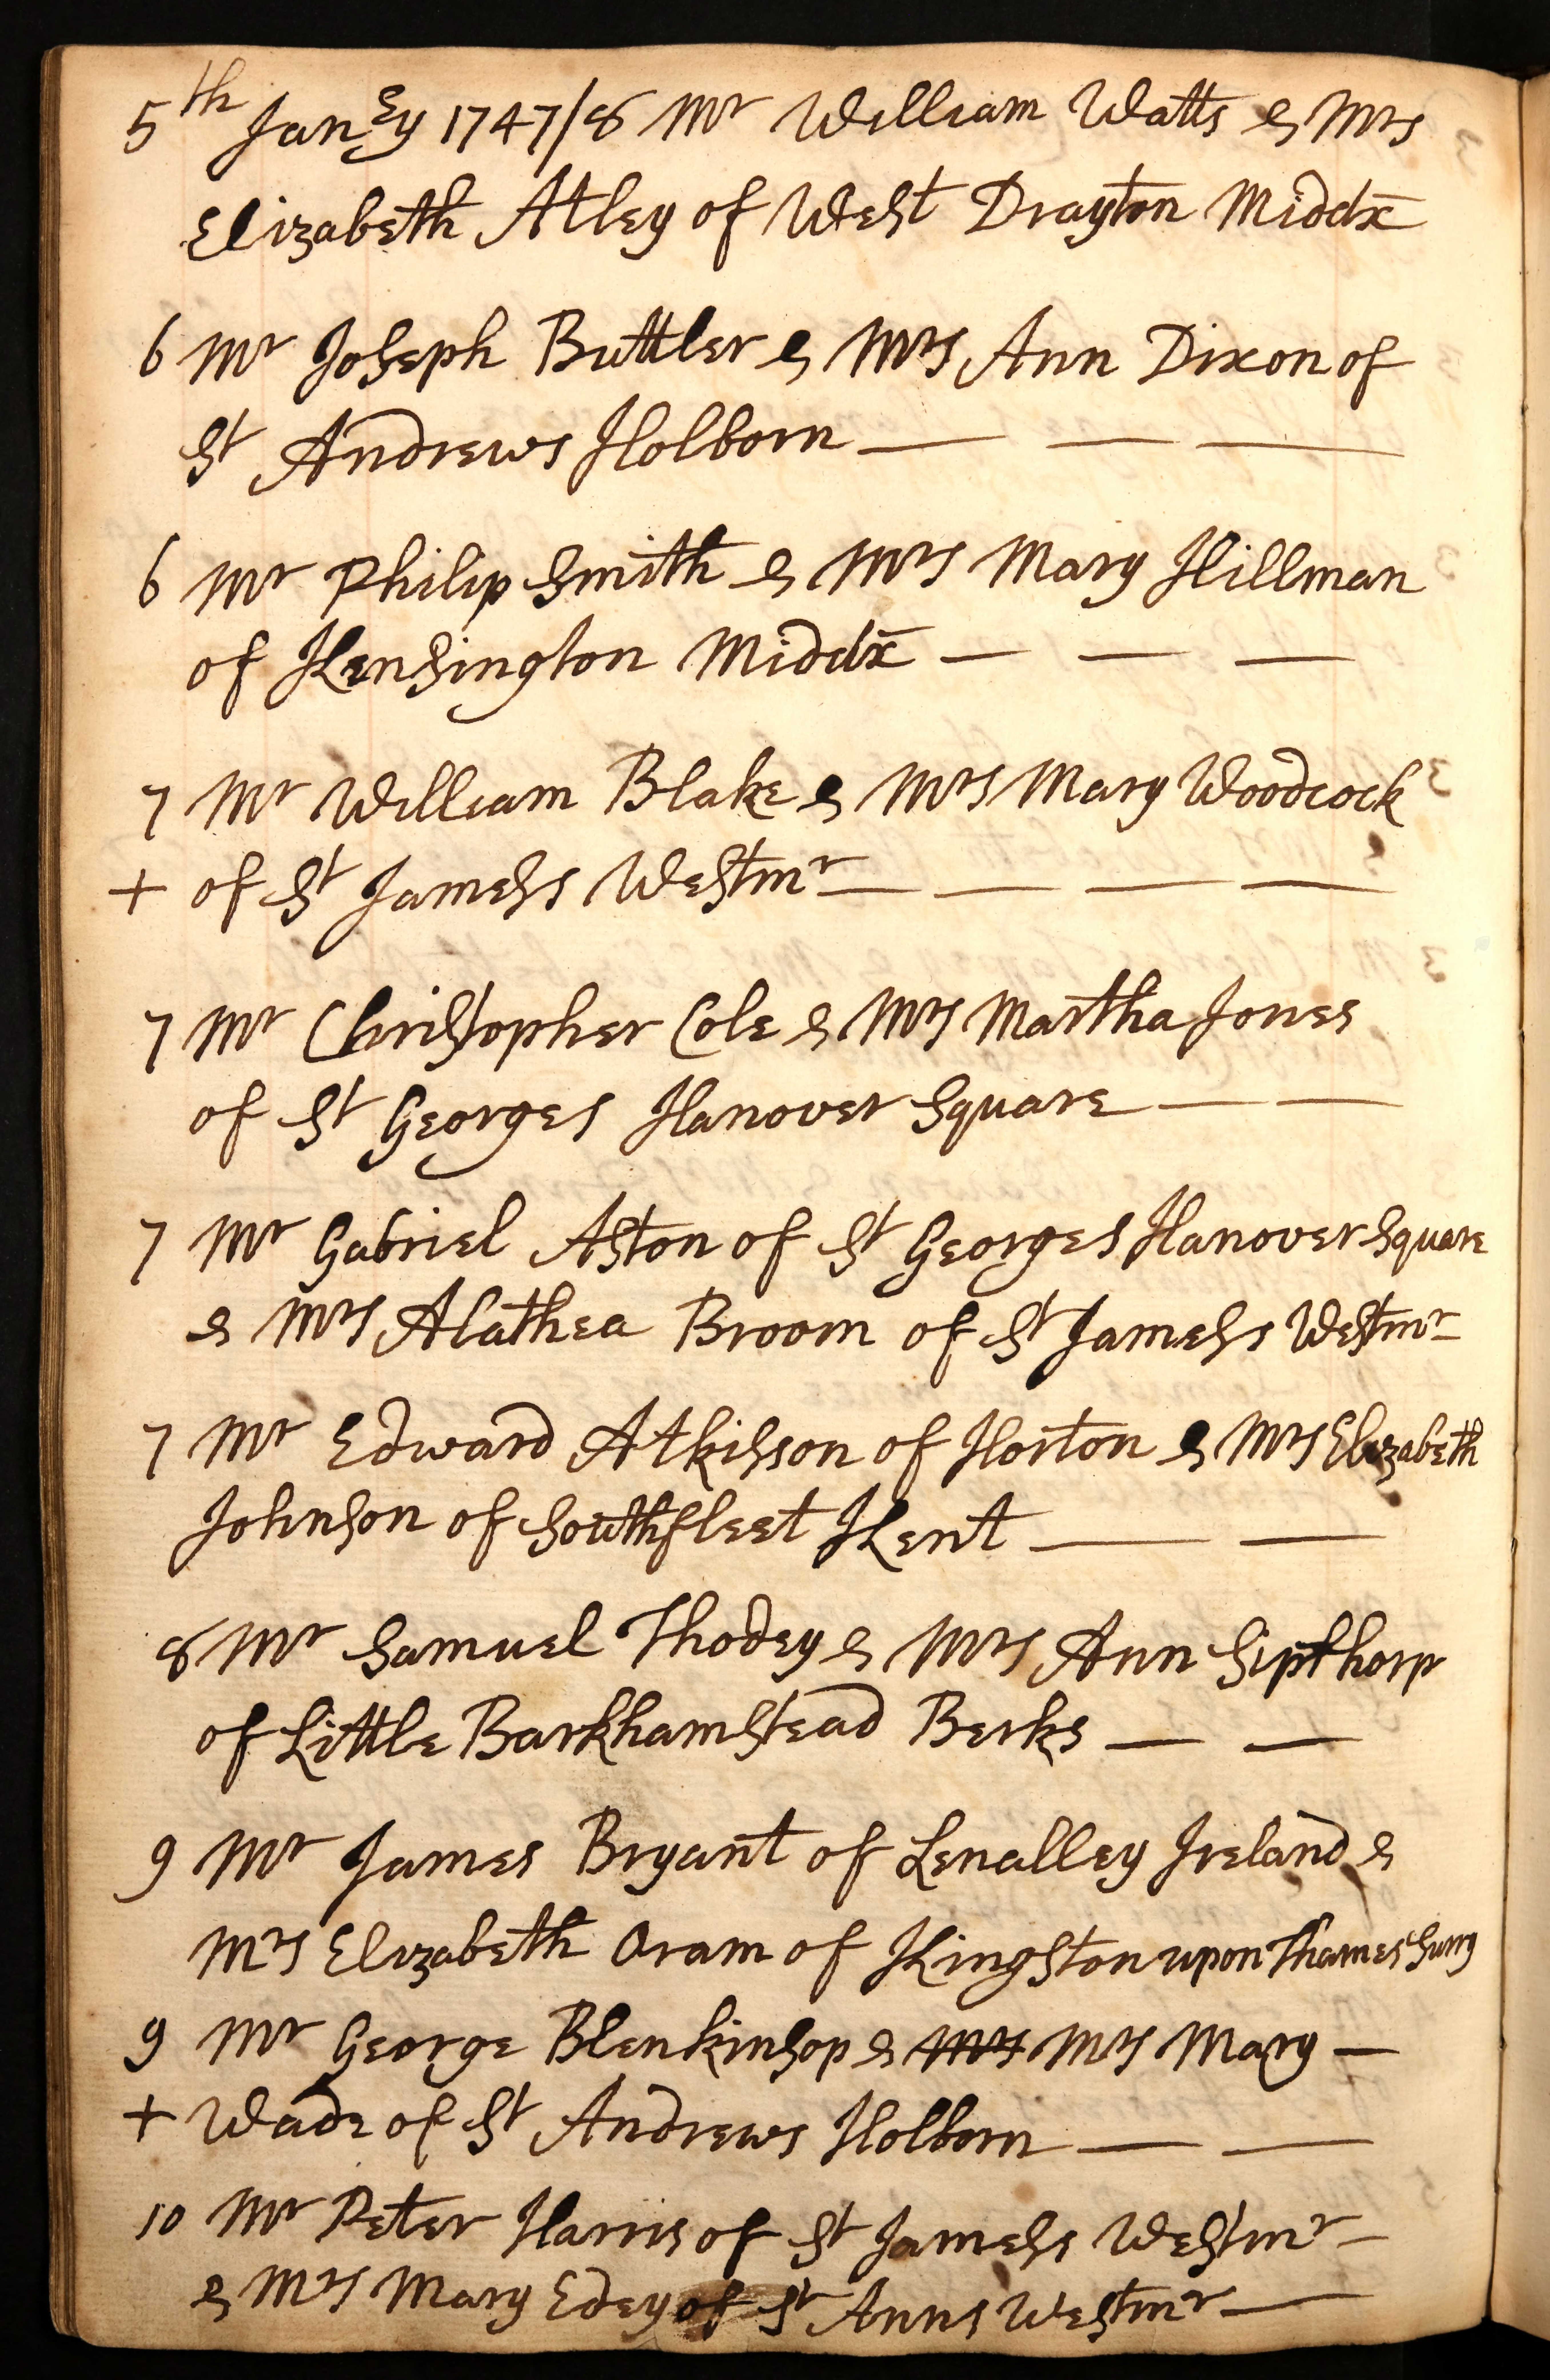 5th Janry 1747/8 Mr William Watts & Mrs
Elizabeth Atley of West Drayton Middx
6 Mr Joseph Buttler & Mrs Ann Dixon of
St Andrews Holborn — — —
6 Mr Philip Smith & Mrs Mary Hillman
of Kensington Middx — — —
7 Mr William Blake & Mrs Mary Woodcock
+ of St Jamess Westmr — — — —
7 Mr Christopher Cole & Mrs Martha Jones
of St Georges Hanover Square — —
7 Mr Gabriel Aston of St Georges Hanover Square
& Mrs Alathea Broom of St Jamess Westmr
7 Mr Edward Atkisson of Horton & Mrs Elizabeth
Johnson of Southfleet Kent — —
8 Mr Samuel Thodey & Mrs Ann Sipthorp
of Little Barkhamstead Berks — —
9 Mr James Bryant of Lenalley Ireland &
Mrs Elizabeth Oram of Kingston upon Thames Surry
9 Mr George Blenkinsop & Mrs Mrs Mary —
+ Wade of St Andrews Holborn — —
10 Mr Peter Harris of St Jamess Westmr —
& Mrs Mary Edey of St Anns Westmr —